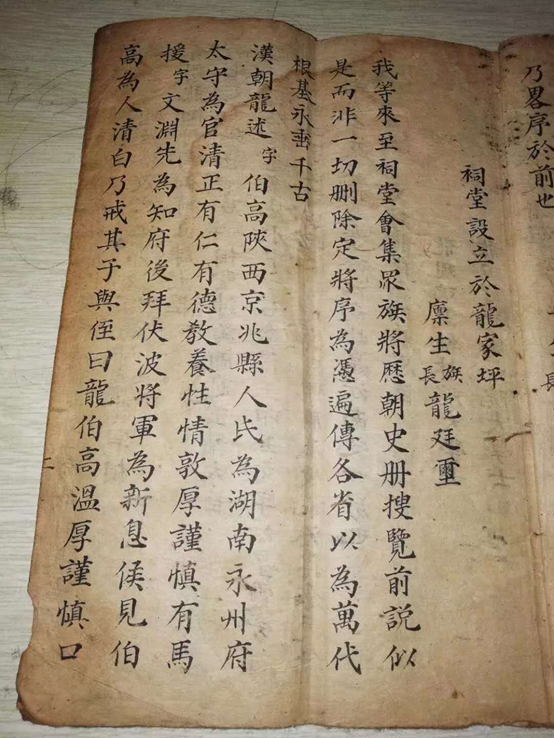 乃畧序於前也
祠堂設立於龍家坪
廪生族長龍廷壐
我等來至祠堂會集眾族將歷朝史册搜覽前説似
是而非一切刪除定將序為憑遍傳各省以為萬代
根基永垂千古
漢朝龍述字伯高陝西京兆縣人氏為湖南永州府
太守為官清正有仁有德教養性情敦厚謹慎有馬
援字文淵先為知府後拜伏波將軍為新息侯見伯
高為人清白乃戒其子與侄曰龍伯高溫厚謹慎口
二